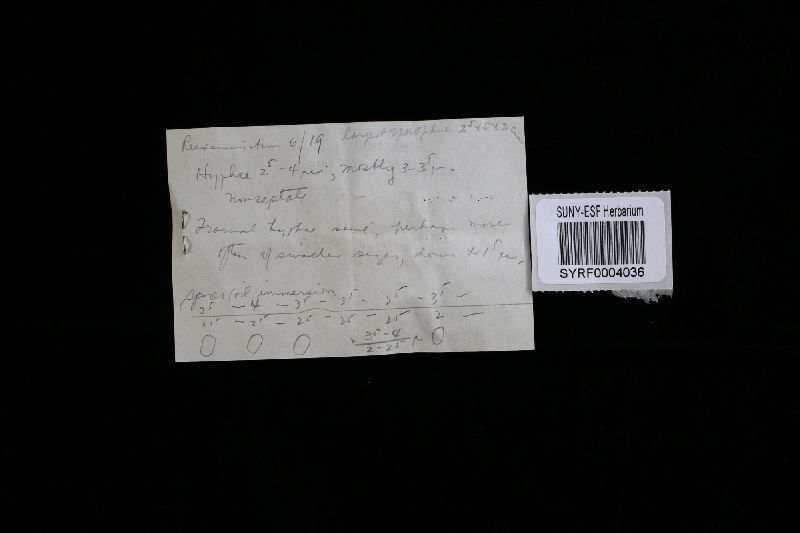 Reexamination 6/19 largest sporophore 2⁵x5x2 cm
Hyphae 2⁵-4 µ, mostly 3-3⁵ µ.
nonseptate
Tramal hyphae same, perhaps more
often of smaller sizes, down to 1⁵ µ.
Spores (oil immersion)
3⁵ - 4 - 3⁵ - 3⁵ - 2⁵ - 3⁵ -
2⁵ - 2⁵ - 2⁵ - 2⁵ - 2⁵ 2 -
3⁵-4
2-2⁵ µ
SUNY-ESF Herbarium
SYRF0004036